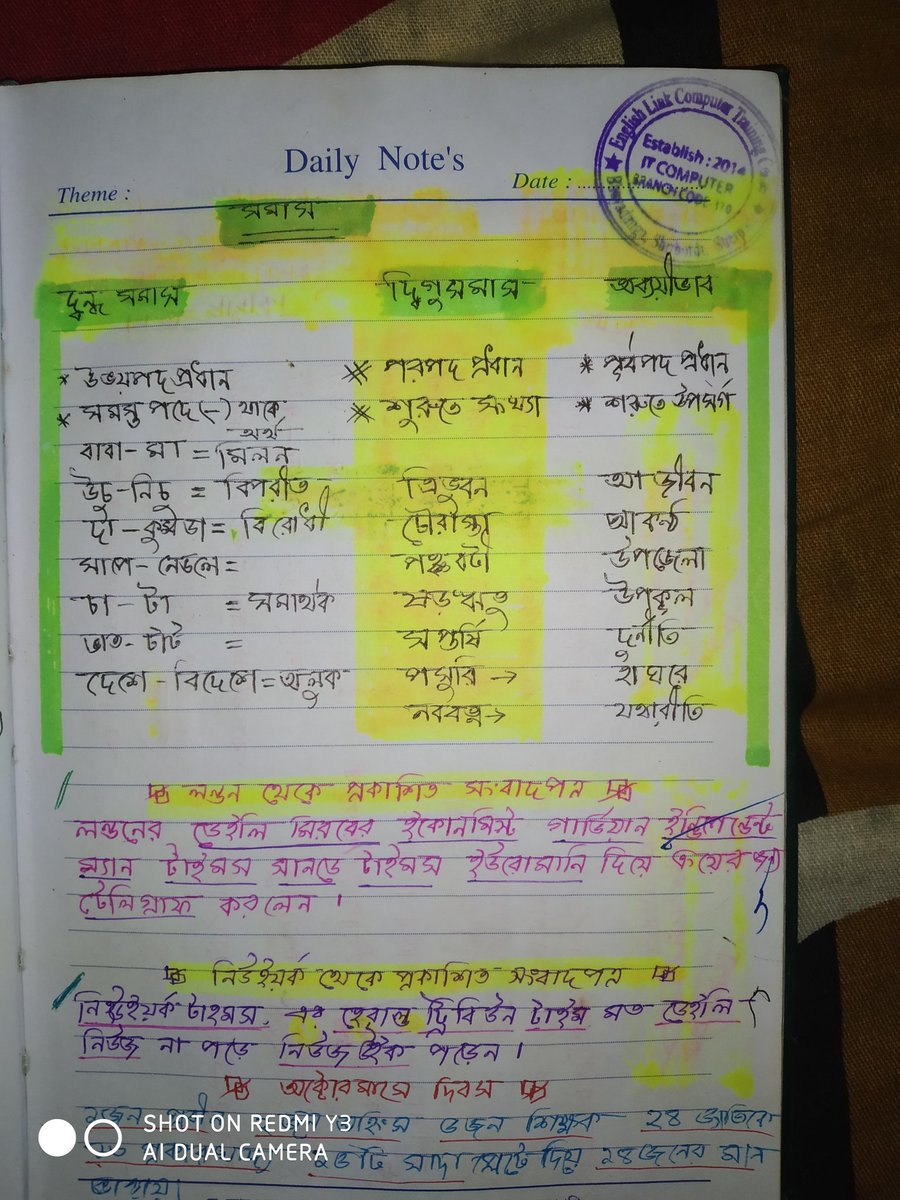 Daily Note's
Theme :
Date :
English Link Computer Training
Establish : 2014
IT COMPUTER
BRANCH CODE
সমাস
দ্বন্দ্ব সমাস
দ্বিগু সমাস
অব্যয়ীভাব
* উভয়পদ প্রধান
* পরপদ প্রধান
* পূর্বপদ প্রধান
* সমস্ত পদে (-) থাকে
* শুরুতে সংখ্যা
* শুরুতে উপসর্গ
অর্থ
বাবা - মা = মিলন
উচু - নিচু = বিপরীত
ত্রিভুবন
আজীবন
দা - কুমড়া = বিরোধী
চৌরাস্তা
আকণ্ঠ
সাপে - নেউলে =
পঞ্চবটী
উপজেলা
চা - টা = সমার্থক
ষড়ঋতু
উপকূল
ভাত - টাট =
সপ্তর্ষি
দুর্নীতি
দেশে - বিদেশে = অলুক
পসুরি →
হা ঘরে
নবরত্ন →
যথারীতি
লন্ডন থেকে প্রকাশিত সংবাদপত্র
লন্ডনের ডেইলি মিররের ইকোনমিস্ট গার্ডিয়ান ইন্ডিপেন্ডেন্ট
ম্যান টাইমস সানডে টাইমস ইউরোমানি দিয়ে ক্রয়ের
টেলিগ্রাফ করলেন ।
নিউইয়র্ক থেকে প্রকাশিত সংবাদপত্র
নিউইয়র্ক টাইমস, এর হেরাল্ড ট্রিবিউন টাইম মত ডেইলি
নিউজ না পড়ে নিউজ উইক পড়েন ।
অক্টোবর মাসে দিবস
৫জন শিক্ষক ২৪ জাতিকে
সাদা দিয়ে ২৪জনের মান
SHOT ON REDMI Y3
AI DUAL CAMERA